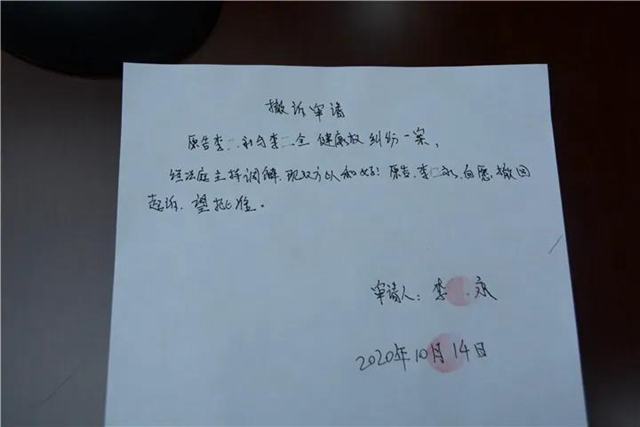 撤诉申请
原告李二永与李二全健康权纠纷一案,
经法庭主持调解,现双方以和好!原告,李二永,自愿撤回
起诉,望批准。
申请人:李 永
2020年10月14日